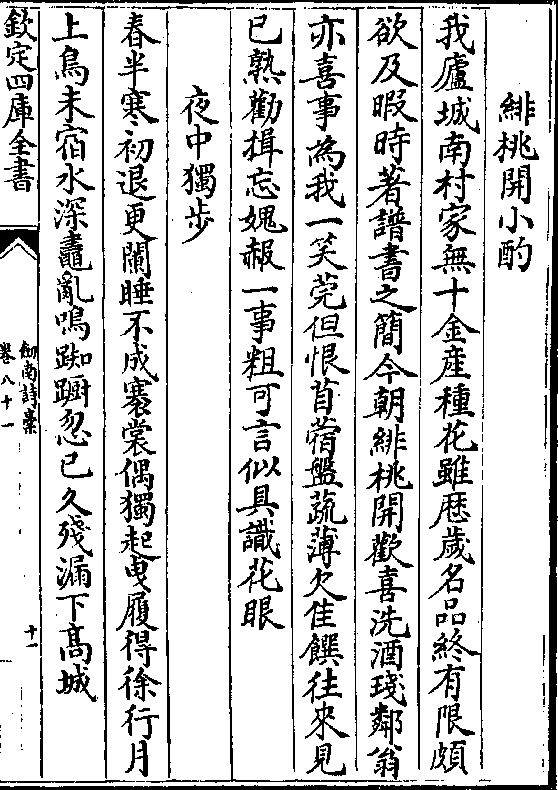 緋桃開小酌
我廬城南村家無十金産種花雖歴歲名品終有限頗
欲及暇時著譜書之簡今朝緋桃開歡喜洗酒琖鄰翁
亦喜事為我一笑莞但恨苜蓿盤蔬薄欠佳饌往來見
已熟勸揖忘媿赧一事粗可言似具識花眼
夜中獨步
春半寒初退更闌睡不成褰裳偶獨起曳履得徐行月
上鳥未宿水深鼃亂鳴踟蹰忽已久殘漏下髙城
欽定四庫全書
劍南詩稾
卷八十一
十一